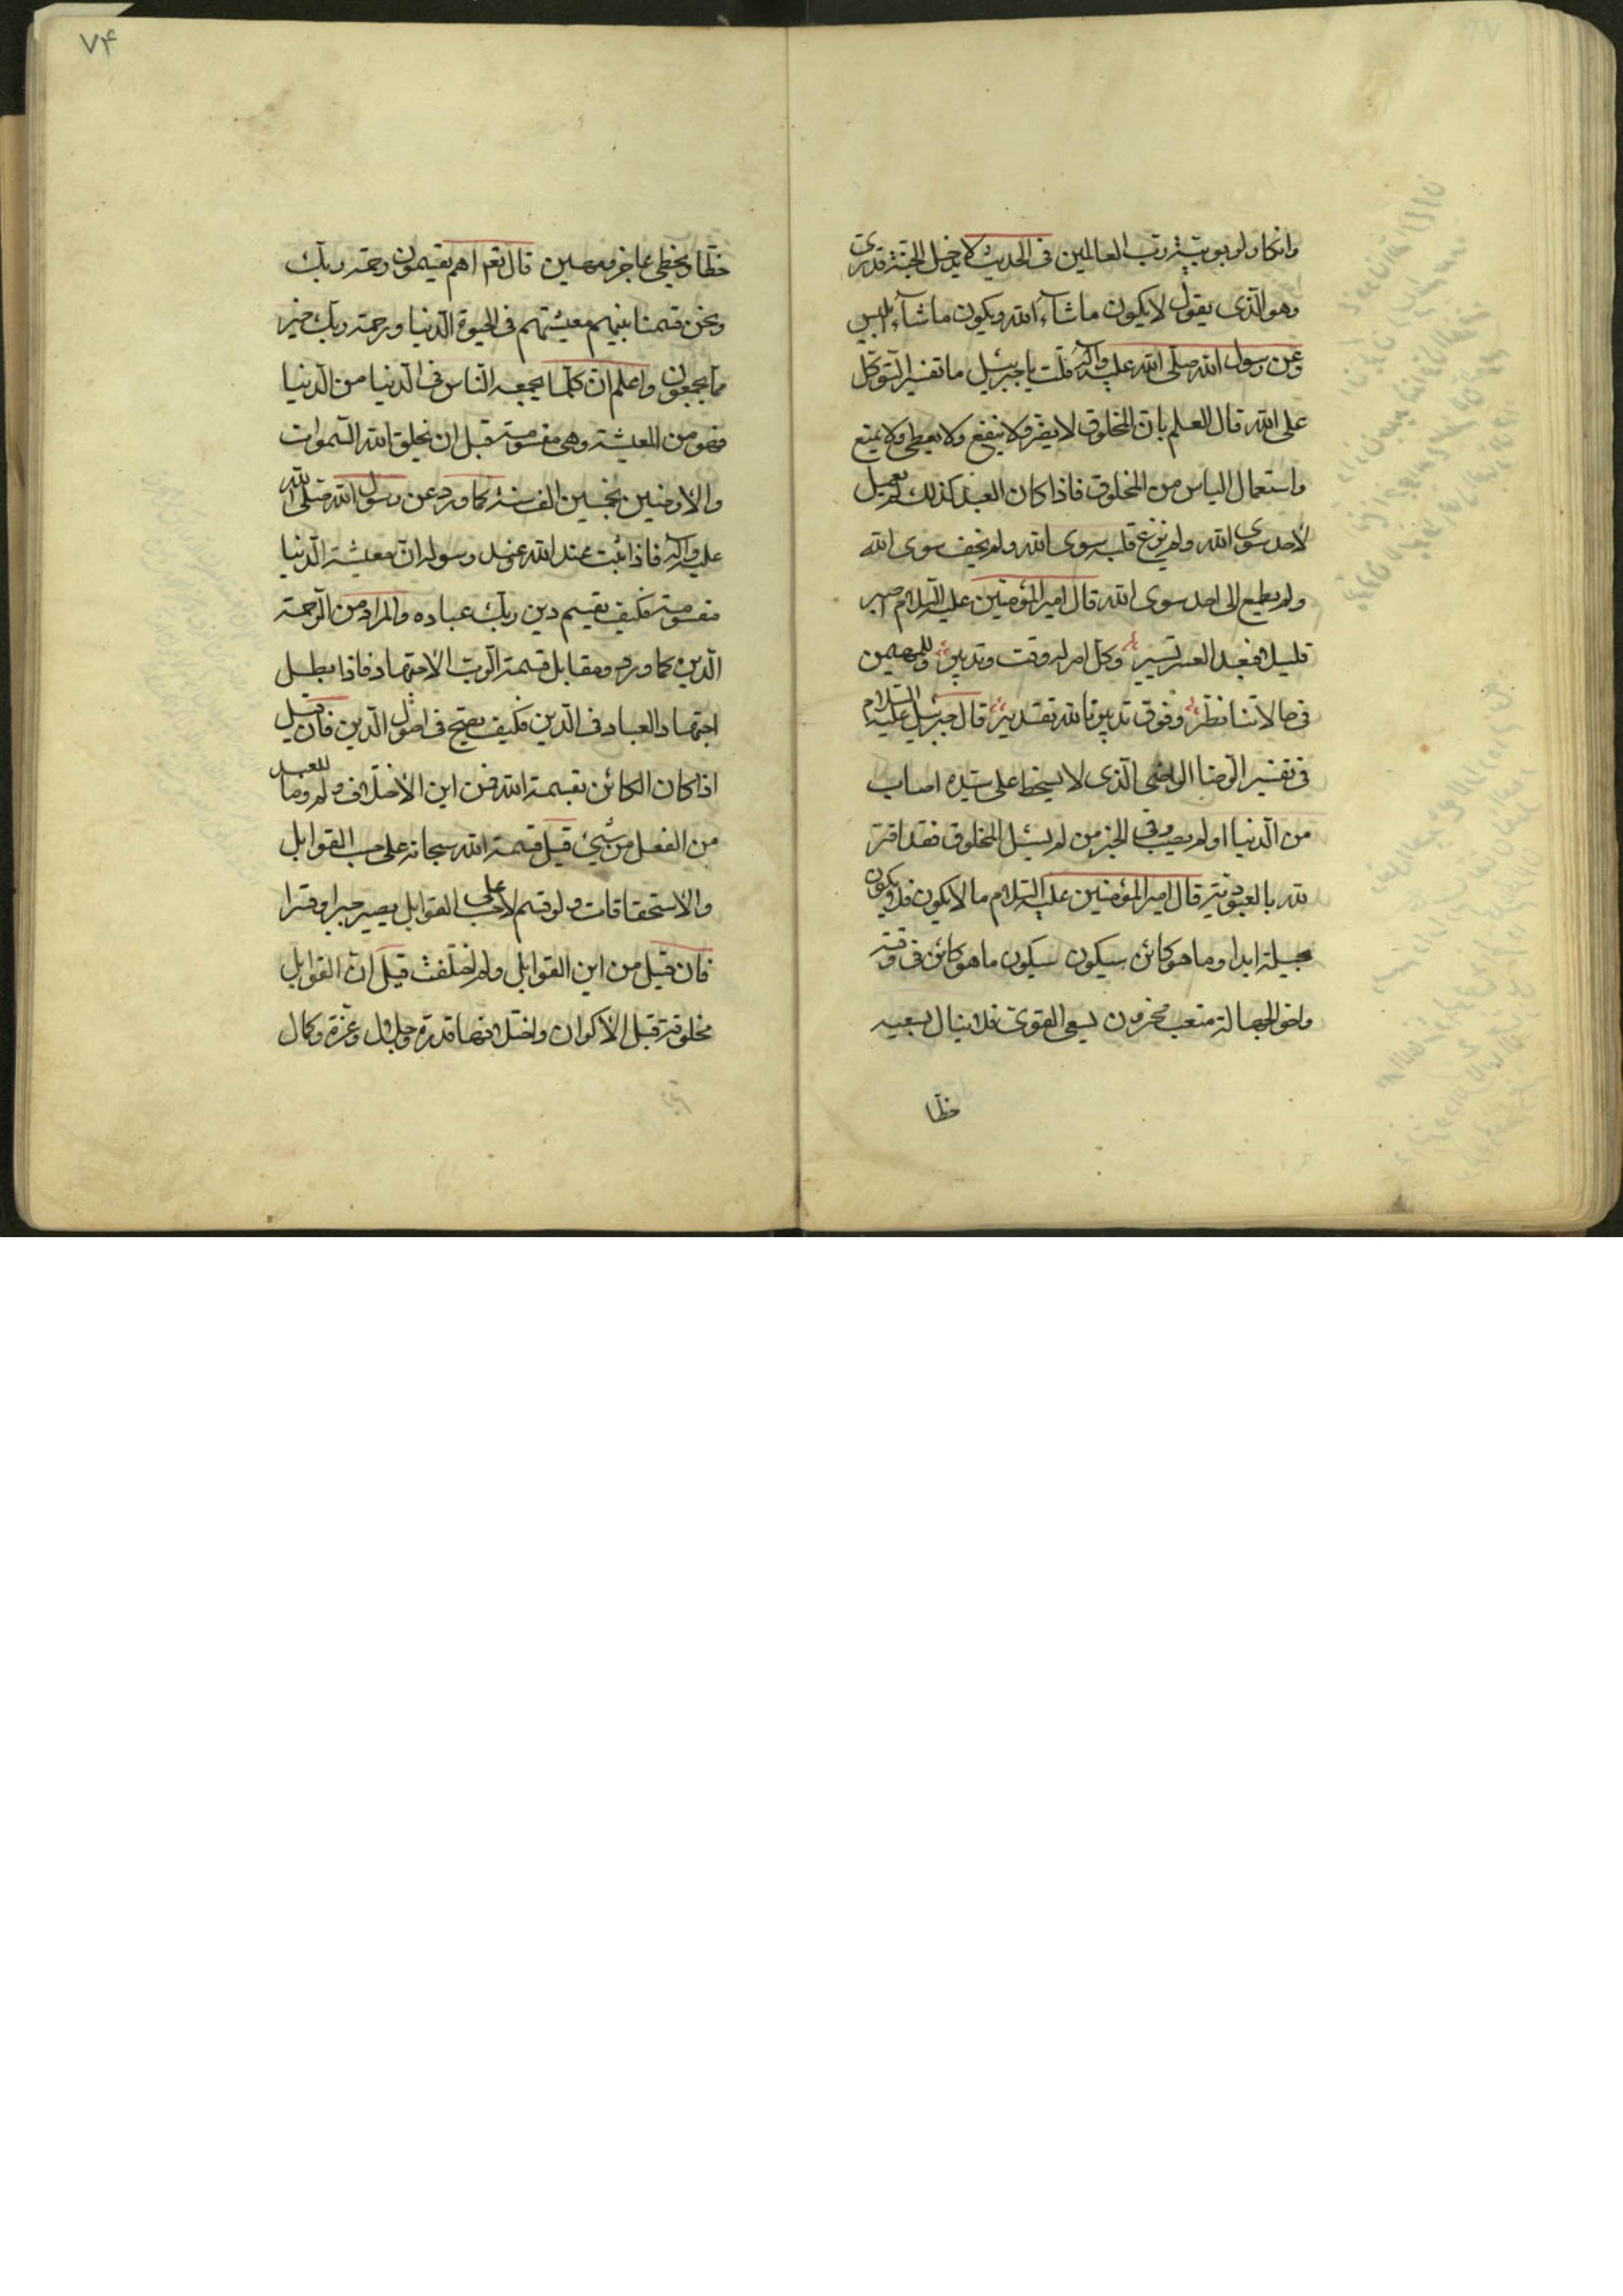 وانكار لربوبيته رب العالمين فى الحديث لا يدخل الجنة قدرى
وهو الذى يقول لا يكون ما شآء الله ويكون ما شآء ابليس
وعن رسول الله صلى الله عليه وآله قلت يا جبرئيل ما تفسير التوكل
على الله قال العلم بان المخلوق لا يضر ولا ينفع ولا يعطى ولا يمنع
واستعمال الياس من المخلوق فاذا كان العبد كذلك لم يعمل
لاحد سوى الله ولم يزغ قلبه سوى الله ولم يخف سوى الله
ولم يطمع الى احد سوى الله قال امير المؤمنين عليه السلام اصبر
قليلا فبعد العسر تيسير وكل امر له وقت وتدبير وللمهيمن
فى حالاتنا نظر وفوق تدبيرنا لله تقدير قال جبرئيل عليه السلام
فى تفسير الرضا الراضى الذى لا يسخط على سيده اصاب
من الدنيا او لم يصب وفى الخبر من لم يسئل المخلوق فقد اقر
لله بالعبودية قال امير المؤمنين عليه السلام ما لا يكون فلا يكون
بحيلة ابدا وما هو كائن سيكون سيكون ما هو كائن فى وقته
واخو الجهالة متعب محزون يسعى القوى فلا ينال بسعيه
حظا
۷۴
حظا ويحظى عاجز ومهين قال نعم اهم يقسمون رحمة ربك
ونحن قسمنا بينهم معيشتهم فى الحيوة الدنيا ورحمة ربك خير
مما يجمعون واعلم ان كلما يجمعه الناس فى الدنيا من الدنيا
فهو من المعيشة وهى مقسومة قبل ان يخلق الله السموات
والارضين بخمسين الف سنة كما ورد عن رسول الله صلى الله
عليه وآله فاذا ثبت عند الله وعند رسوله ان معيشة الدنيا
مقسومة فكيف يقسم دين ربك عباده والمراد من الرحمة
الدين كما ورد ومقابل قسمة الرب الاجتهاد فاذا بطل
اجتهاد العباد فى الدين فكيف يصح فى اصول الدين فان قيل
اذا كان الكائن بقسمة الله فمن اين الاختلاف ولم وما للعبد
من الفعل من شيئ قيل قسمة الله سبحانه على حسب القوابل
والاستحقاقات ولو قسم لا على حسب القوابل يصير جبرا وقسرا
فان قيل من اين القوابل ولم اختلفت قيل ان القوابل
مخلوقة قبل الاكوان واختلافها قدرة وجلال وعزة وكمال